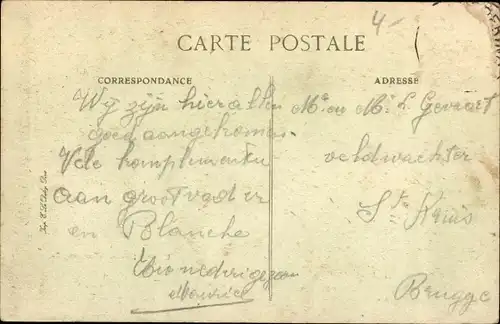 4-
CARTE POSTALE
CORRESPONDANCE
ADRESSE
Wij zijn hier allen
goed aangekomen.
Vele komplimenten
aan grootvader
en Blanche
Maurice
Mr en Me L. Gevaert
veldwachter
St Kruis
Brugge